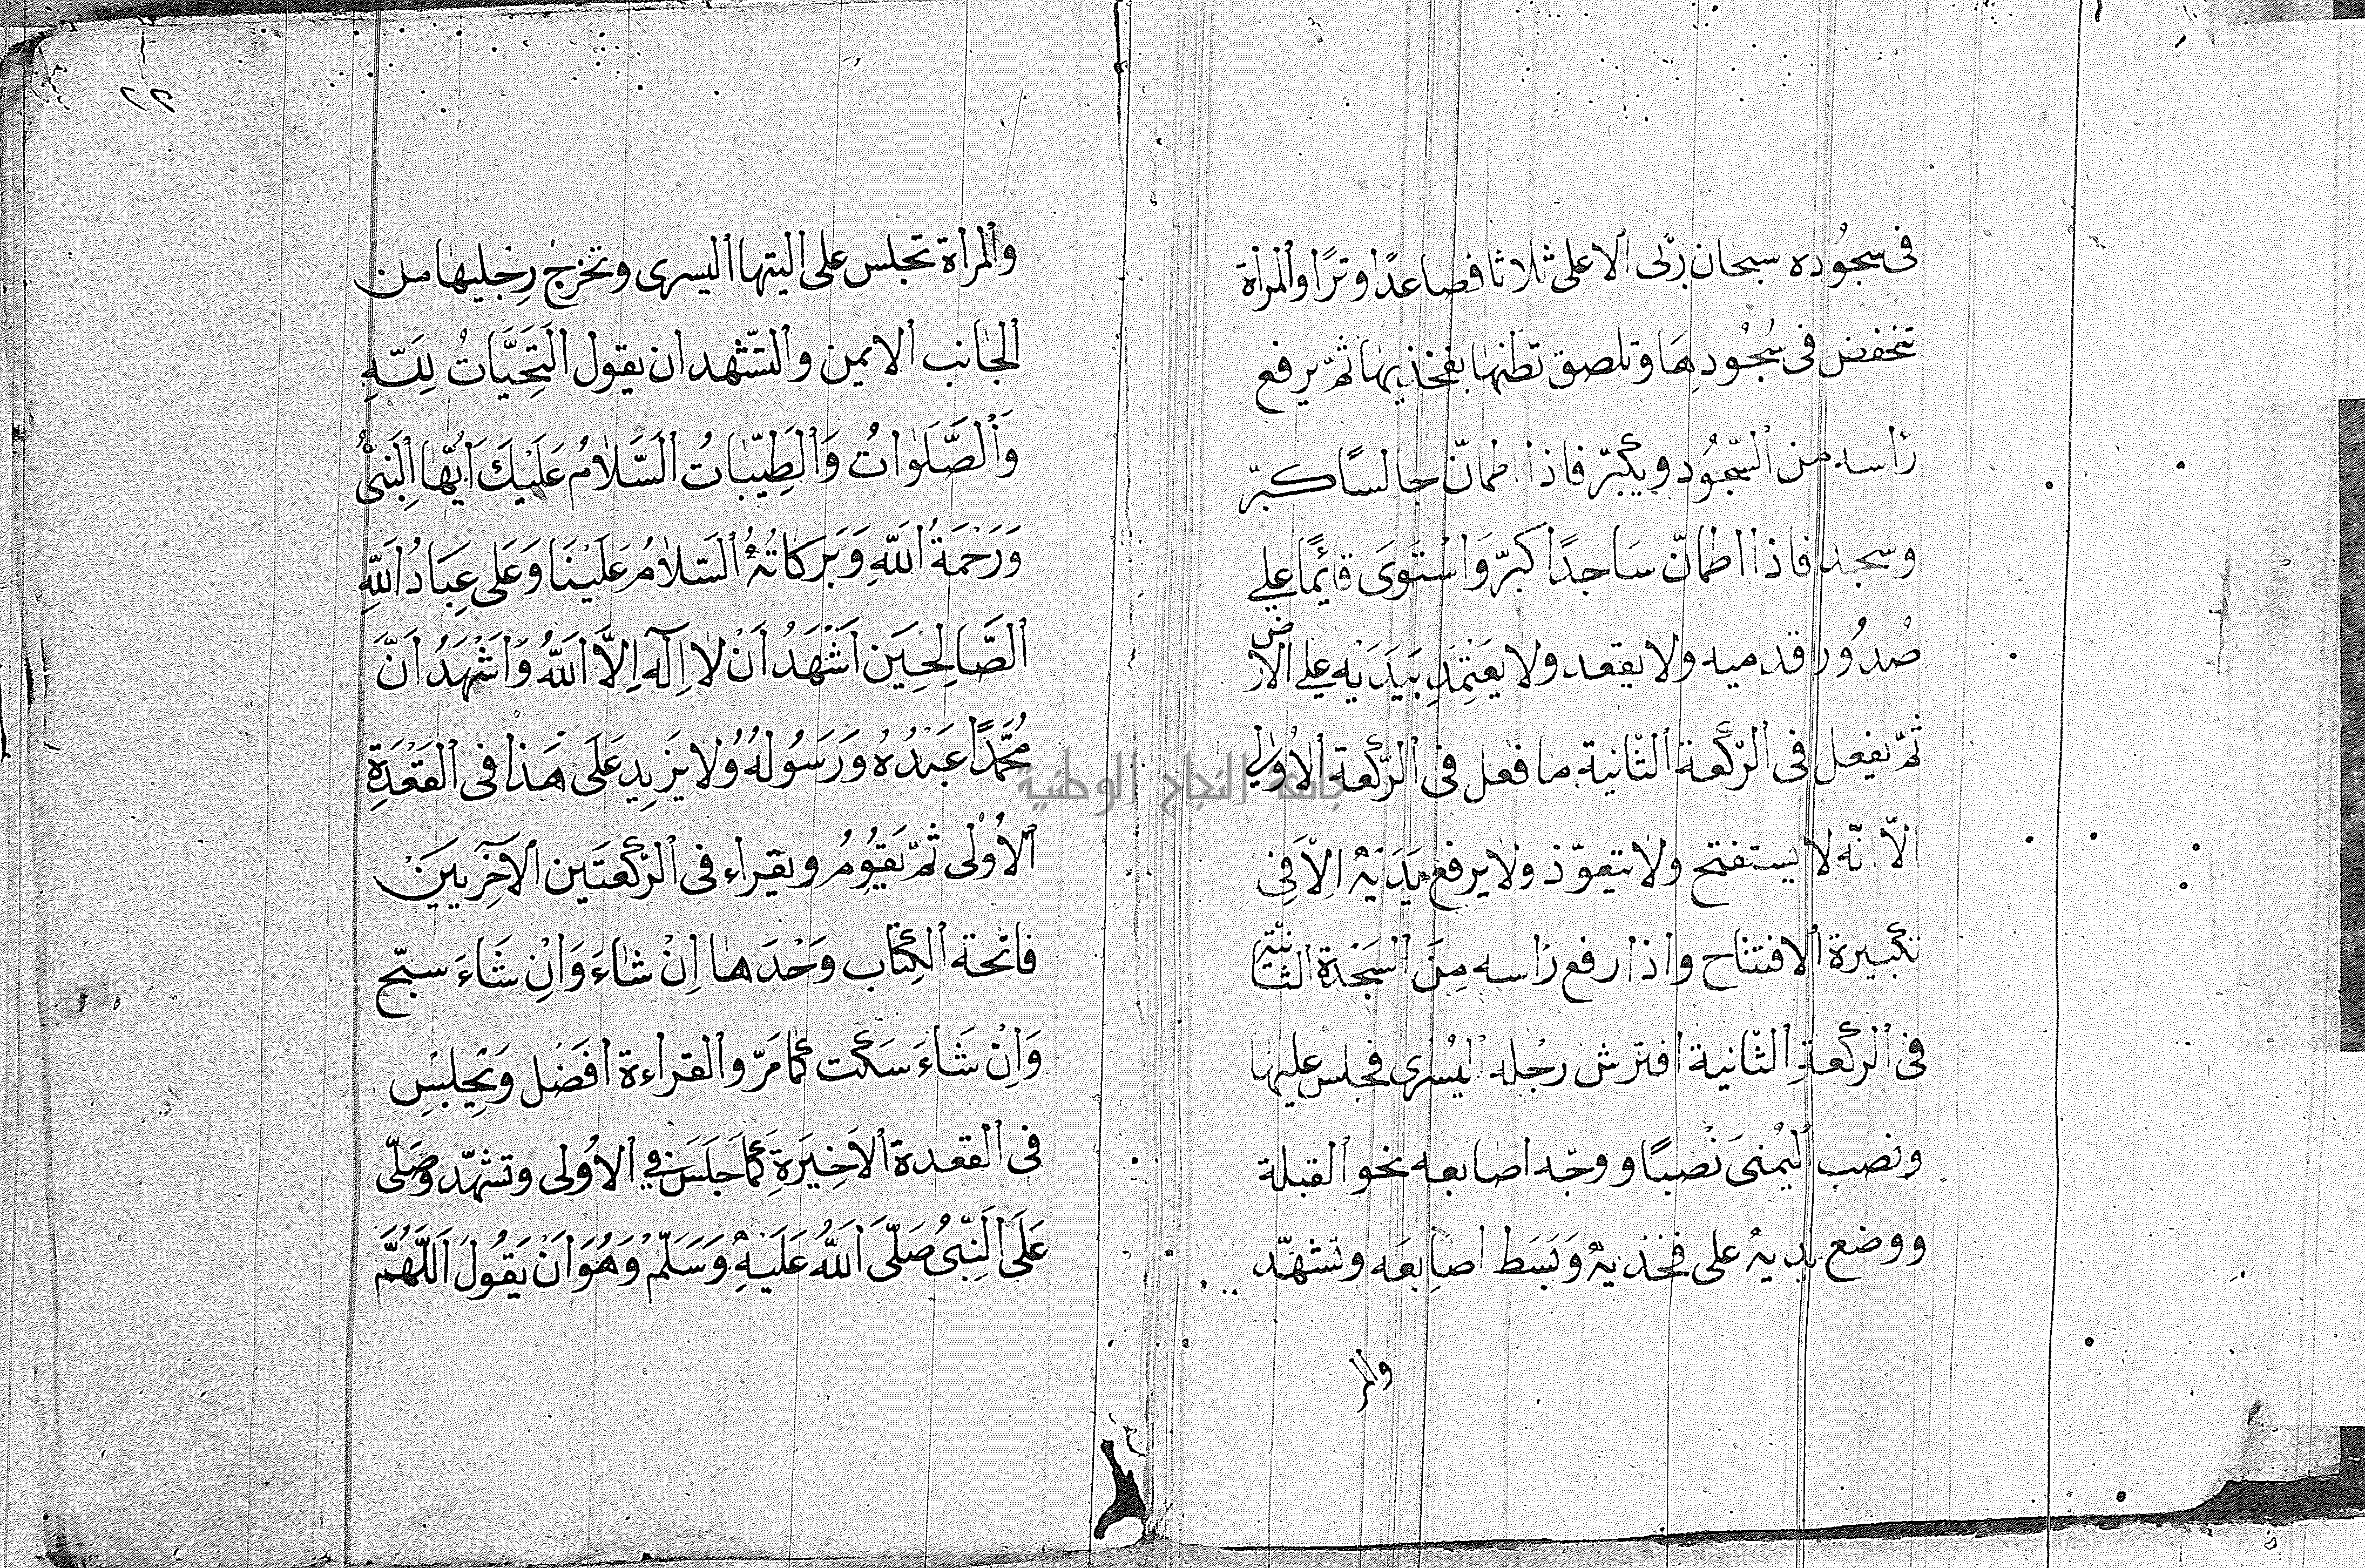 فى سجُوده سبحان ربّى الاعلى ثلاثا فصاعدًا وترًا والمراة
تنخفض فى سُجُودِهَا وتلصق بطنها بفخذيها ثمّ يرفع
رأسه من السّجُود ويكبّر فاذا اطمانّ جالسًا كبّر
وسجد فاذا اطمانّ سَاجدًا كبّر وَاسْتَوَى قائِمًا على
صُدُور قدميه ولا يقعد ولا يعتمِدِ بَيَدَيْه على الارض
ثمّ يفعل فى الرّكعة الثّانية ما فعل فى الرّكعة الاُولى
الاّ انّه لا يستفتح ولا يتعوّذ ولا يرفع يَدَيْهِ الاّ فِى
تكبيرة الافتتاح واذا رفع رأسه مِنَ السَجْدة الثانيّة
فى الركعةِ الثّانية افترش رجْله اليُسْرى فجلس عليها
ونصب اليُمْنىَ نَصْبًا ووجّه اصابعه نحو القبلة
ووضع يديْهِ على فخذيْهِ وَبَسَط اصَابِعَه وتشهّد
والمر
٢٢
والمراة تجلس على اليتها اليسرى وتخرج رِجْليها من
الجانب الايمن والتّشهد ان يقول اَلتَّحِيَّاتُ لِلّٰهِ
وَالصَّلَوَاتُ وَالطَّيِّبَاتُ اَلسَّلَامُ عَلَيْكَ اَيُّهَا النَبىُّ
وَرَحْمَةُ اللّٰهِ وَبَرَكَاتُهُ اَلسَّلَامُ عَلَيْنَا وَعَلى عِبَادُ اللّٰهِ
الصَّالِحِينَ اَشْهَدُ اَنْ لا اِلٰه اِلاَّ اللّٰهُ وَاَشْهَدُ اَنَّ
مُحَمَّدًا عَبْدُهُ وَرَسُولُهُ وُلا يَزِيد عَلَى هَذا فى القَعْدَةِ
الاُوْلى ثمّ يَقُومُ ويقراء فى الرّكعَتَين الآخِرِيَيْن
فاتحة الكِتَاب وَحْدَها اِنْ شَاءَ وَاِنْ شَاءَ سبّح
وَاِنْ شَاءَ سَكَت كما مَرّ والقراءة افَضَل وَيَجْلِسْ
فى القعدة الاَخِيَرةِ كَمَا جَلَسَ فِى الاُولى وتشهّد وصَلّى
عَلَى النَّبِىُّ صَلَّى اللّٰهُ عَلَيْهِ وَسَلَّمْ وَهُوَ اَنْ يَقُولَ اَللّٰهُمَّ
جامعة النجاح الوطنية